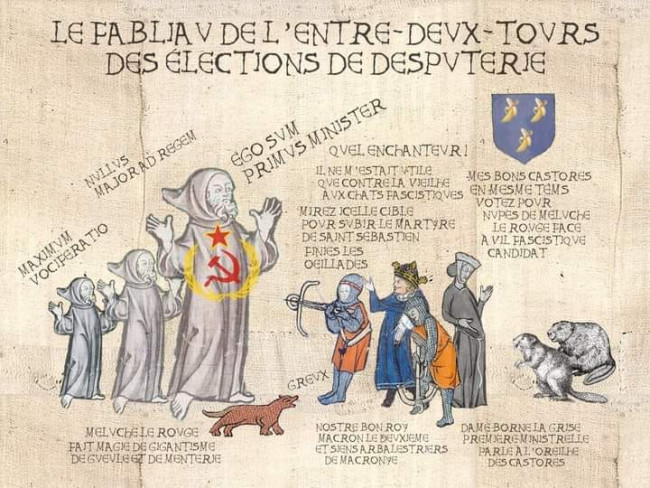 LE FABLIAV DE L'ENTRE-DEVX-TOVRS
DES ÉLECTIONS DE DESPVTERIE
NVLLVS
MAJOR AD REGEM
EGO SVM
PRIMVS MINISTER
MAXIMVM
VOCIFERATIO
QVEL ENCHANTEVR !
IL NE M'ESTAIT VTILE
QVE CONTRE LA VIEILHE
AVX CHATS FASCISTIQVES
MIREZ ICELLE CIBLE
POVR SVBIR LE MARTYRE
DE SAINT SEBASTIEN
FINIES LES
OEILLADES
MES BONS CASTORES
EN MESME TEMS
VOTEZ POVR
NVPES DE MELVCHE
LE ROVGE FACE
A VIL FASCISTIQVE
CANDIDAT
GREVX
MELVCHE LE ROVGE
FAIT MAGIE DE GIGANTISME
DE GVEVLE ET DE MENTERIE
NOSTRE BON ROY
MACRON LE DEVXIEME
ET SIENS ARBALESTRIERS
DE MACRONYE
DAME BORNE LA GRISE
PREMIERE MINISTRELLE
PARLE A L'OREILHE
DES CASTORES